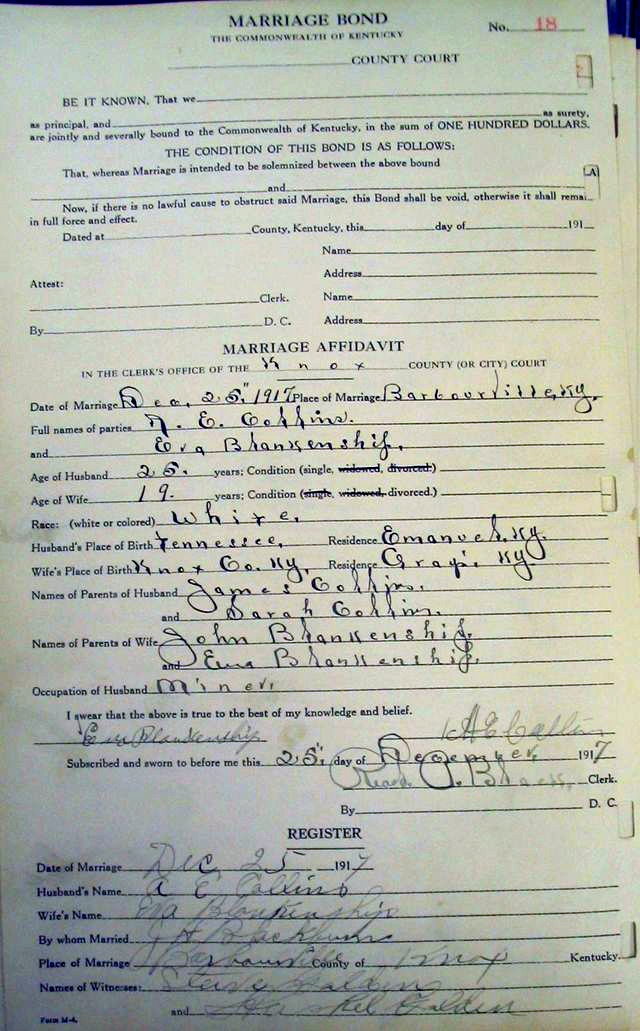 MARRIAGE BOND
No. 18
THE COMMONWEALTH OF KENTUCKY
COUNTY COURT
BE IT KNOWN, That we
as principal, and as surety,
are jointly and severally bound to the Commonwealth of Kentucky, in the sum of ONE HUNDRED DOLLARS.
THE CONDITION OF THIS BOND IS AS FOLLOWS:
That, whereas Marriage is intended to be solemnized between the above bound
and
Now, if there is no lawful cause to obstruct said Marriage, this Bond shall be void, otherwise it shall remai
in full force and effect.
Dated at County, Kentucky, this day of 191
Name
Address
Attest:
Clerk. Name
By D. C. Address
MARRIAGE AFFIDAVIT
IN THE CLERK'S OFFICE OF THE Knox COUNTY (OR CITY) COURT
Date of Marriage Dec, 25," 1917 Place of Marriage Barbourville, Ky.
Full names of parties A. E. Collins.
and Eva Blankenship,
Age of Husband 25. years; Condition (single, widowed, divorced.)
Age of Wife 19. years; Condition (single, widowed, divorced.)
Race: (white or colored) White,
Husband's Place of Birth Tennessee, Residence Emanuel, Ky.
Wife's Place of Birth Knox Co. Ky, Residence Ky.
Names of Parents of Husband James Collins,
and Sarah Collins.
Names of Parents of Wife John Blankenship,
and Blankenship,
Occupation of Husband Miner,
I swear that the above is true to the best of my knowledge and belief.
Eva Blankenship A E Collins
Subscribed and sworn to before me this 25," day of December, 1917
Clerk.
By D. C.
REGISTER
Date of Marriage Dec, 25 1917
Husband's Name A E Collins
Wife's Name Eva Blankenship
By whom Married Blackburn
Place of Marriage Barbourville County of Knox Kentucky.
Names of Witnesses: Steve Golden
and Golden
Form M-4.